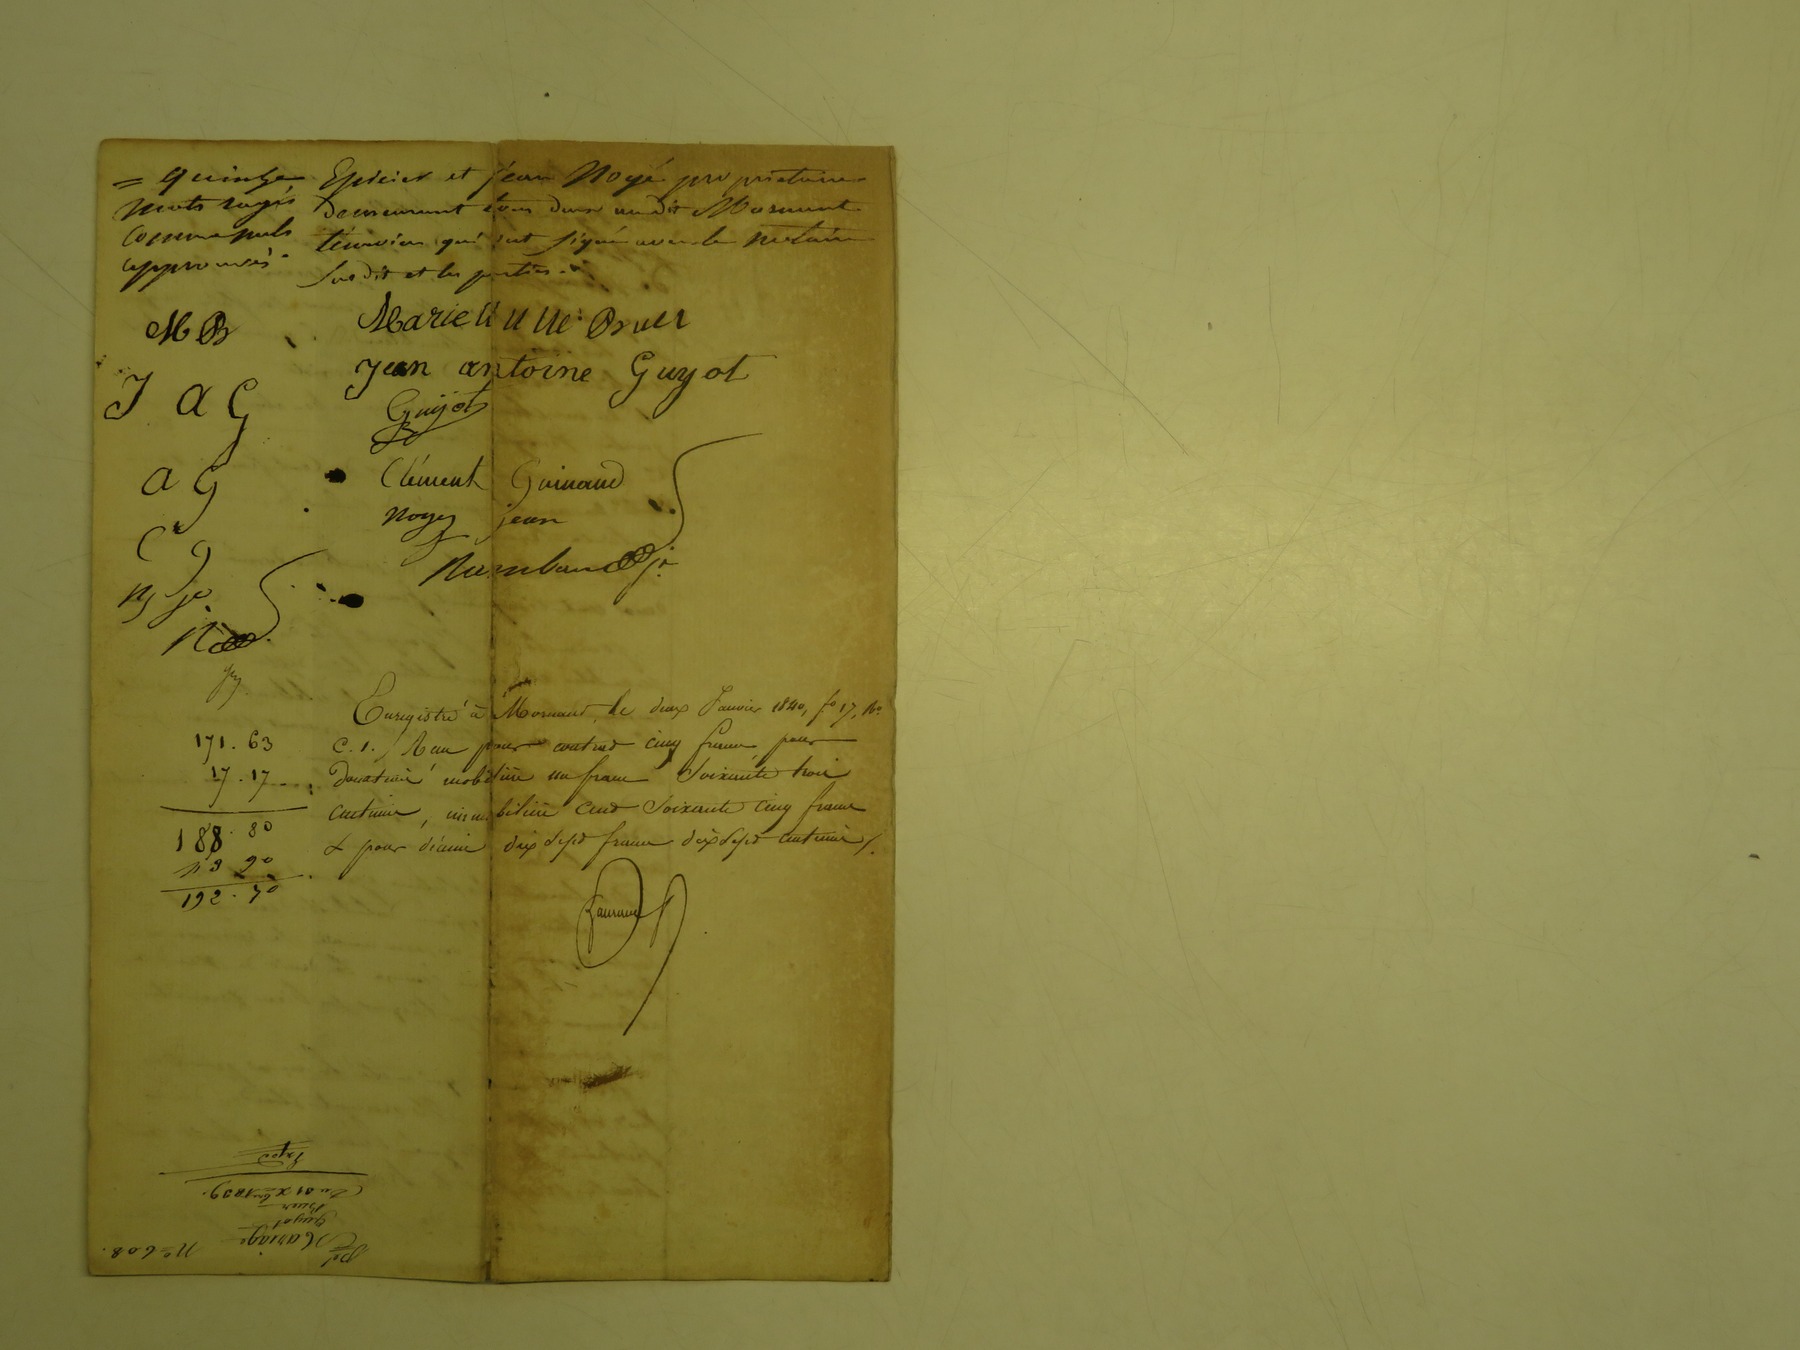 = quinze
mots rayés
comme nuls
approuvés.
Epicier et jean Noyé propriétaire
demeurant tous deux audit Mornant
témoins qui ont signé avec le notaire
susdit et les parties.
MB
J a G
a G
C G
N je
Marie Bruer
jean antoine Guyot
Guyot
Clément Guinand
Noyer jean
Rambaud je
171.63
17.17
188.80
3 90
192.70
Enregistré à Mornant, le deux Janvier 1840, fo 17, Ro
C. 1. / Reçu pour contrat cinq francs pour
donation mobilière un franc soixante trois
centimes, immobilière cent soixante cinq francs
& pour décime dix sept francs dix sept centimes /.
No 608.
Mariage
Guyot
Bruer
Du 31 Xbre 1839.
Exped